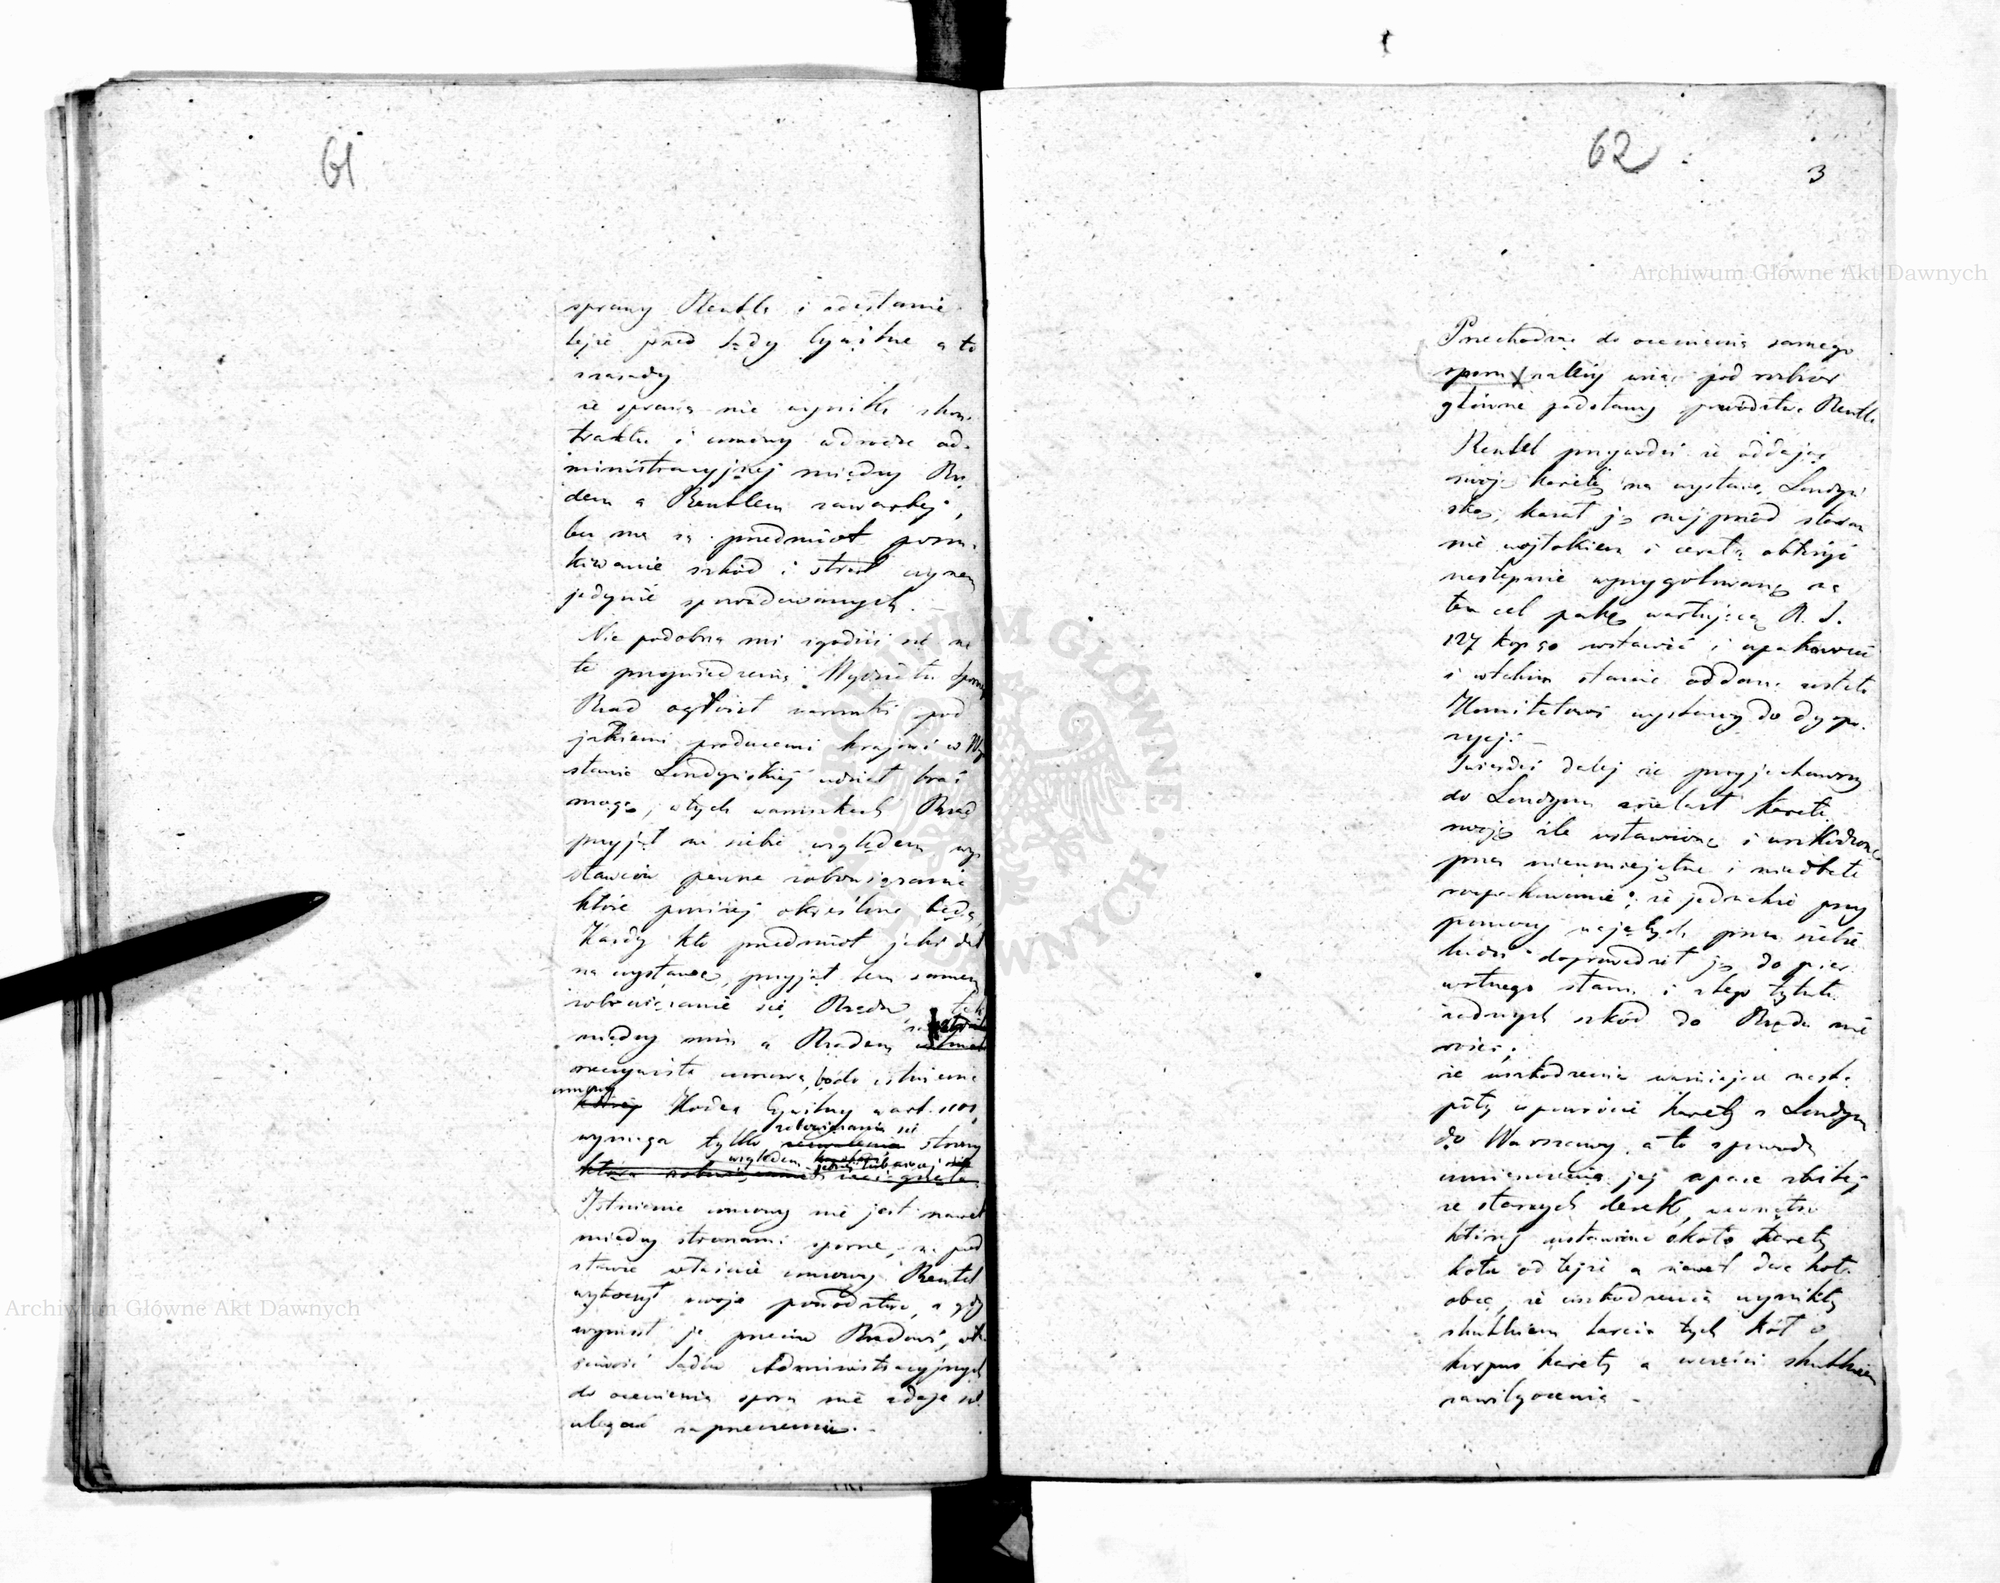 61
sprawy Rentla i odesłanie
tejże przed Sądy Cywilne a to
z zasady
że sprawa nie wynikła z kon-
traktu i umowy w drodze ad-
ministracyjnej między Rzą-
dem a Rentlem zawartej,
lecz ma za przedmiot poszu-
kiwanie szkód i strat czynem
jedynie spowodowanych. –
Nie podobna mi zgodzić się na
to przypuszczenie Wydziału Spornego
Rząd ogłosił warunki pod
jakiemi producenci krajowi w Wy-
stawie Londyńskiej udział brać
mogą, w tych warunkach Rząd
przyjął na siebie względem wy-
stawców pewne zobowiązania
które poniżej określone będą,
Każdy kto przedmiot jaki dał
na wystawę, przyjął tem samem
zobowiązanie się Rządu, tak
między nim a Rządem
rzeczywista umowa, bo do istnienia
umowy
której Kodex Cywilny w art. 1101
zobowiązania się
wymaga tylko zezwolenia strony
względem jednej lub więcej
która zobowiązanie zaciągnęła
Istnienie umowy nie jest nawet
między stronami sporne, na pod-
stawie właśnie umowy Rentel
wytoczył swoje powództwo, a gdy
wyniósł je przeciw Rządowi, wła-
ściwość Sądów Administracyjnych
do ocenienia sporu nie zdaje się
ulegać zaprzeczeniu. –
62
3
Przechodząc do ocenienia samego
sporu należy wziąć pod rozbiór
główne podstawy powództwa Rentla
Rentel przywodzi że oddając
swoją karetę na wystawę Londyń-
ską, kazał ją najprzód staran-
nie wojłokiem i ceratą obkryć
następnie w przygotowaną na
ten cel pakę wartującą R. S.
127 kop 50 wstawić i upakować
i w takim stanie oddaną została
Komitetowi wystawy do dyspo-
zycji. –
Twierdzi dalej że przyjechawszy
do Londynu znalazł karetę
swoją źle ustawioną i uszkodzoną
przez nieumiejętne i niedbałe
rozpakowanie; że jednakże przy
pomocy najętych przez siebie
ludzi doprowadził ją do pier-
wotnego stanu i z tego tytułu
żadnych szkód do Rządu nie
rości;
że uszkodzenia ważniejsze nastą-
piły w powrocie karety z Londynu
do Warszawy, a to z powodu
umieszczenia jej w pace zbitej
ze starych desek, wewnątrz
której ustawiono około karety
koła od tejże a nawet dwa koła
obce, że uszkodzenia wynikły
skutkiem tarcia tych kół o
korpus karety a w części skutkiem
zawilgocenia –
Archiwum Główne Akt Dawnych
Archiwum Główne Akt Dawnych
ARCHIWUM GŁÓWNE AKT DAWNYCH